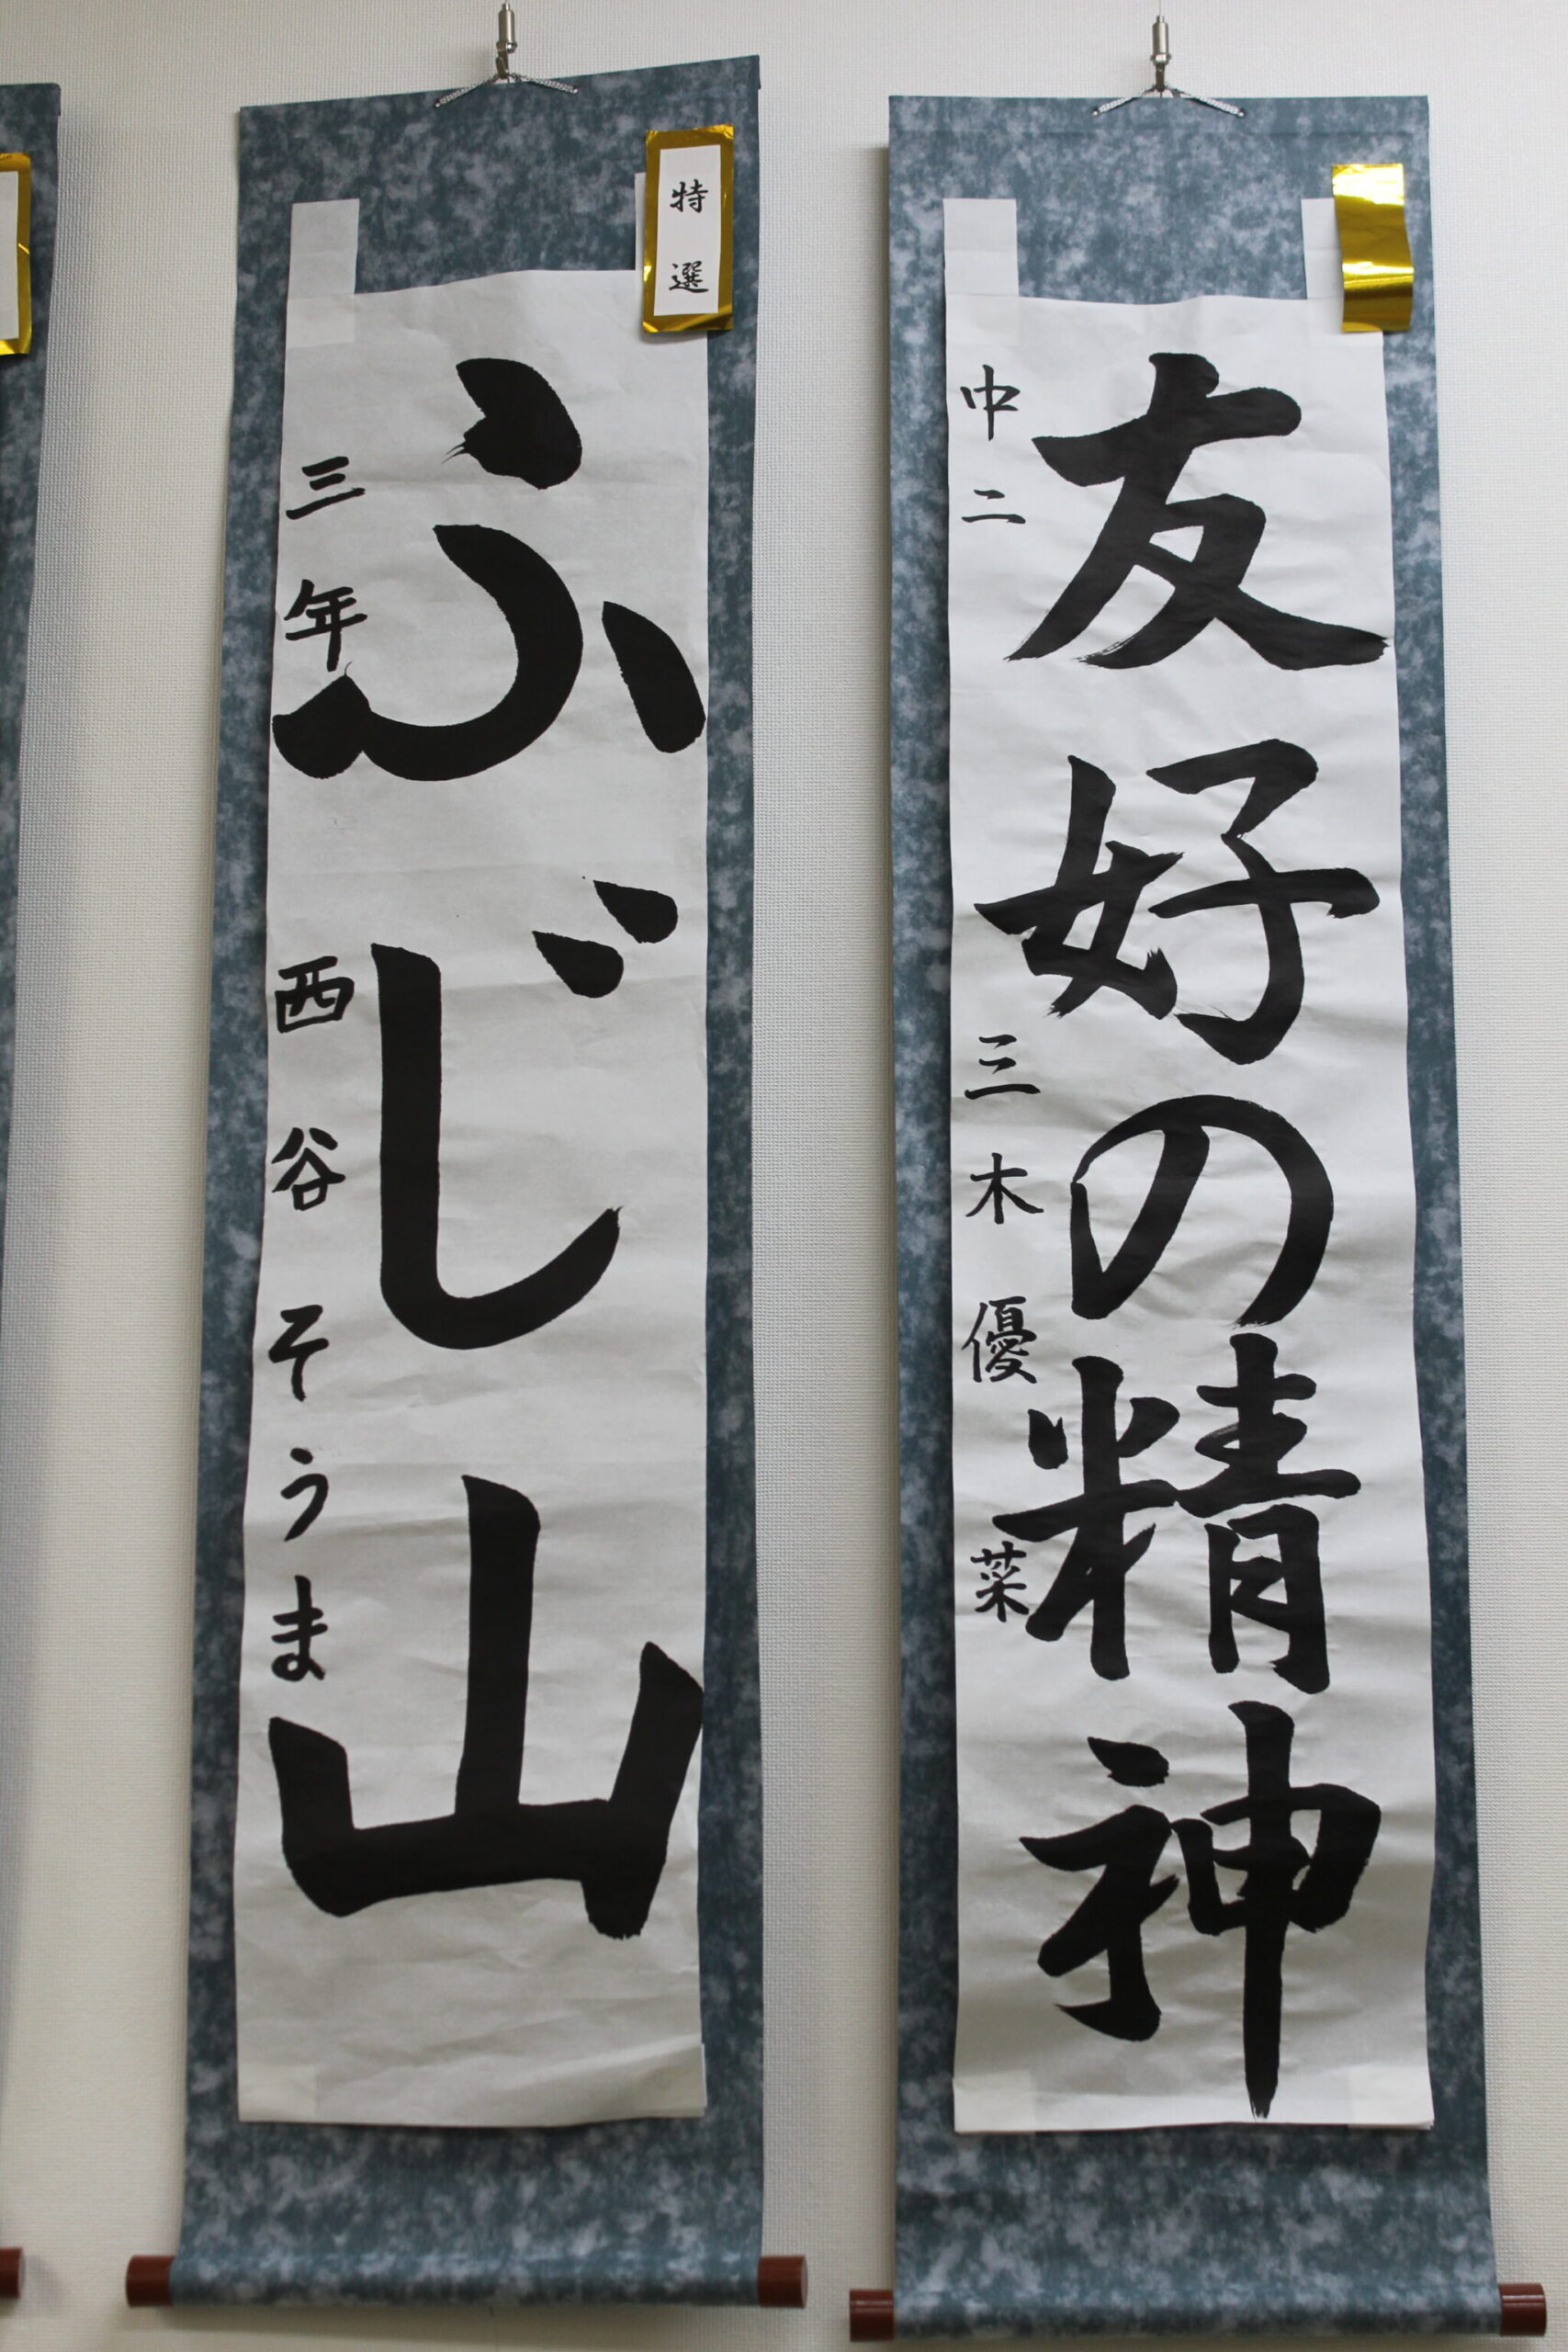 友好の精神
中二 三木優菜
特選
ふじ山
三年 西谷そうま